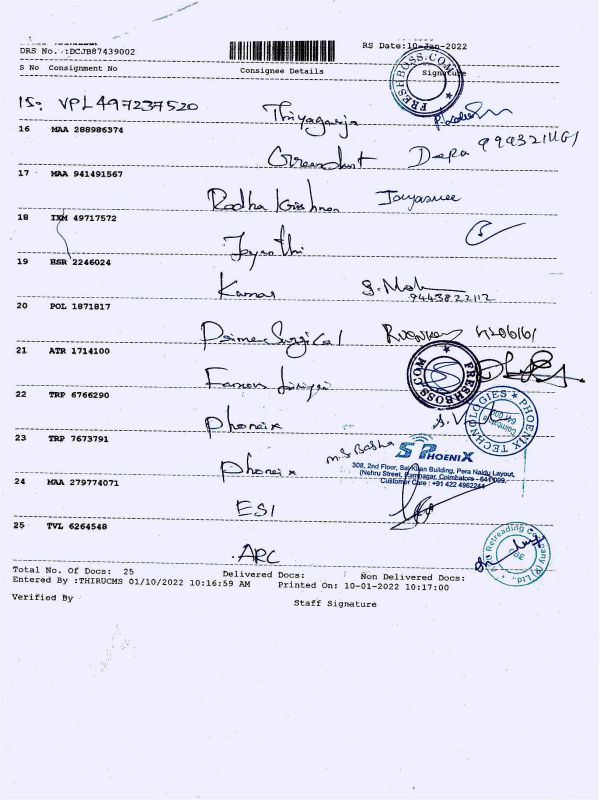 DRS No. .:DCJB87439002
RS Date:10-Jan-2022
S No Consignment No Consignee Details Signature
FRESHBOSS.COM
15. VPL497237520
Thiyagaraja
16 MAA 288986374
Deepa
17 MAA 941491567
Radha Krishnan Jayasree
18 IXM 49717572
Jayanthi
19 HSR 2246024
Kumar S. Moh
9443822112
20 POL 1871817
Prime Surgical
21 ATR 1714100
FRESHBOSS.COM
22 TRP 6766290
Phoneix
PHOENIX TECHNOLOGIES
Coimbatore
641 009
23 TRP 7673791
Phoneix
M.S Basha
S PHOENIX
308, 2nd Floor, Sai Kjian Building, Pera Naidu Layout,
(Nehru Street, Ramnagar, Coimbatore - 641 009.
Customer Care : +91 422 4962244
24 MAA 279774071
ESI
25 TVL 6264548
ARC
Retreading Company (P) Ltd.,
Total No. Of Docs: 25 Delivered Docs: Non Delivered Docs:
Entered By :THIRUCMS 01/10/2022 10:16:59 AM Printed On: 10-01-2022 10:17:00
Verified By Staff Signature